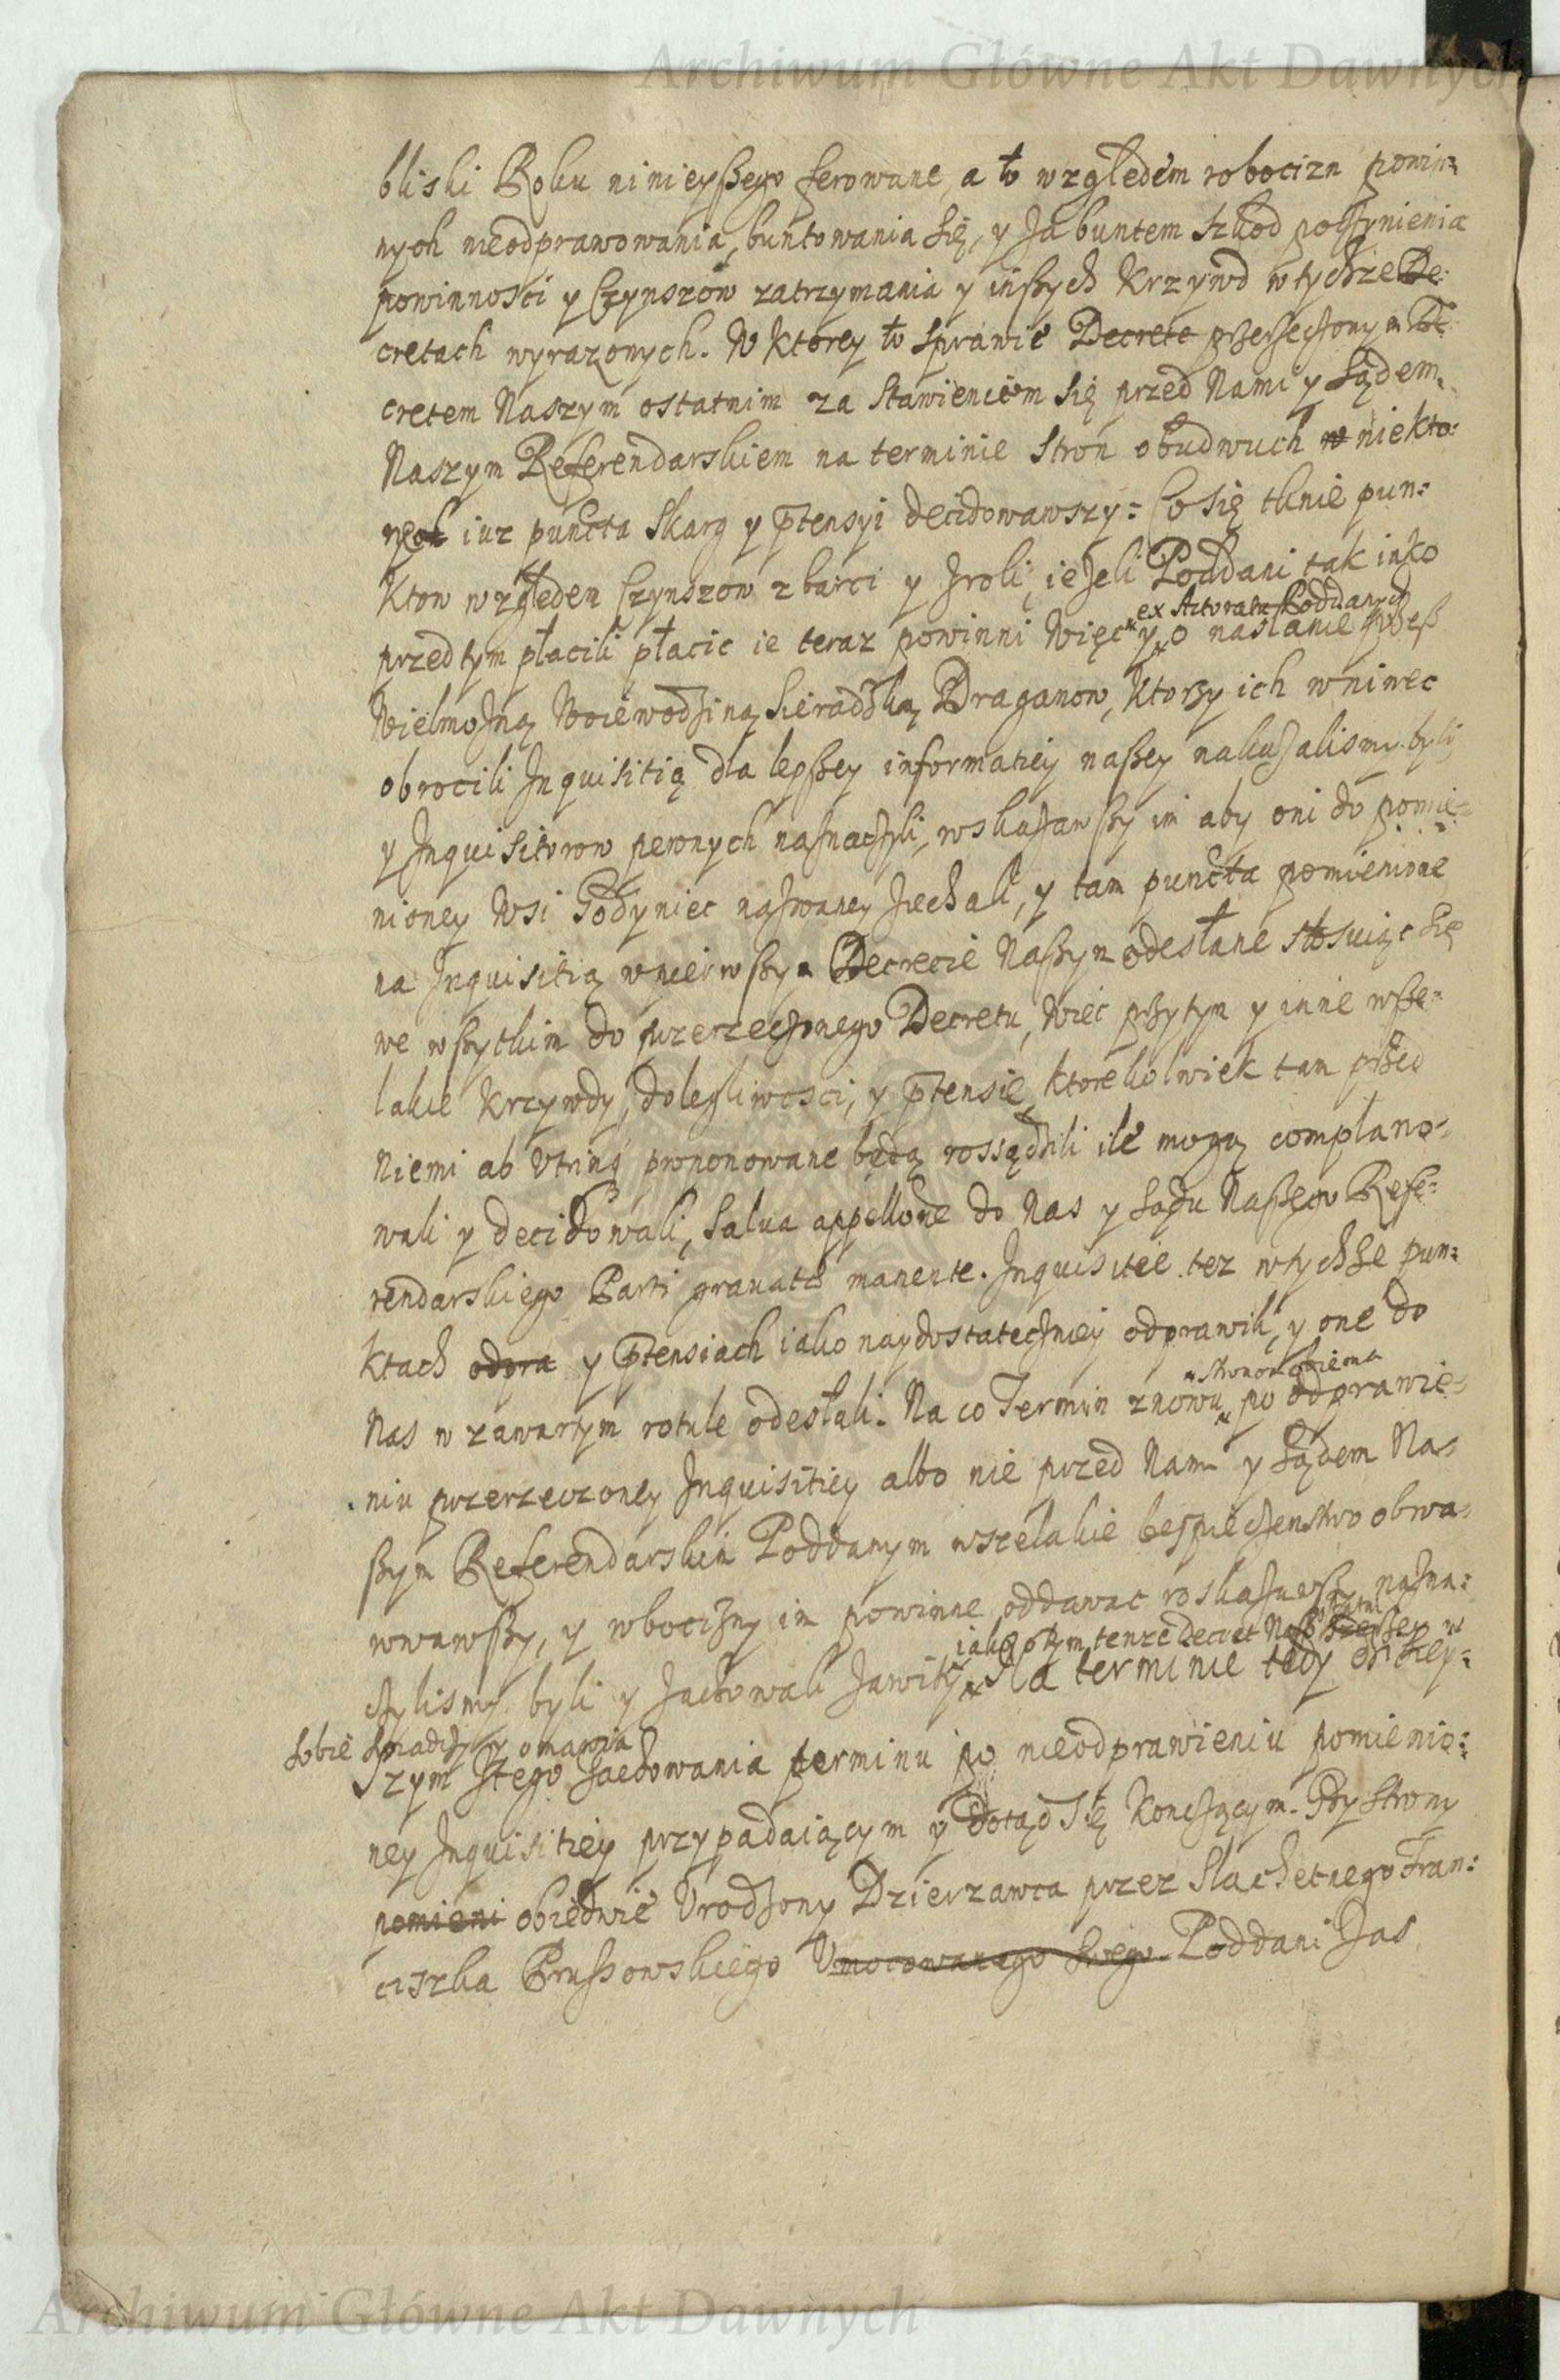 Archiwum Główne Akt Dawnych
bliski Roku ninieyßego ferowane, a to względem robocizn powin=
nych nieodprawowania, buntowania się, y za buntem szkod poczynienia
powinnosci y Czynszow zatrzymania y inßych Krzywd w tychze De=
cretach wyrazonych. W Ktorey to sprawie Decrete przerzeczonym De=
cretem Naszym ostatnim za stawieniem się przed Nami y Sądem
Naszym Referendarskiem na terminie Stron obudwuch w niekto=
rych iuz puncta Skarg y ptensyi decidowawszy: Co się tknie pun=
ktow względem Czynszow z barci y zroli, iezeli Poddani tak iako
ex Actoratu Poddanych
przedtym płacili płacic ie teraz powinni Więc y o nasłanie przeß
Wielmozną Woiewodziną Sieradzką Draganow, Ktorzy ich wniwec
obrocili Inquisitią dla lepßey informatiey naßey nakazalismy byli
y Inquisitorow pewnych naznaczyli, wskazawßy im aby oni do pomie=
nioney Wsi Godyniec nazwaney ziechali, y tam puncta pomienione
na Inquisitią w pierwßym Decrecie Naßym odesłane stosuiąc się
we wßytkim do przerzeczonego Decretu, Więc przytym y inne wße=
lakie Krzywdy, dolegliwosci, y ptensie, ktorekolwiek tam przed
Niemi ab utrinq proponowane będą rossądzili ile mogą complano=
wali y decidowali, Salua appellone do Nas y Sądu Naßego Refe=
rendarskiego Parti grauatae manente. Inquisitie tez w tychze pun=
ktach odpra y ptensiach iako naydostateczniey odprawili, y one do
stronom obiema
Nas w zawartym rotule odesłali. Na co Termin znowu po odprawie=
niu przerzeczoney Inquisitiey albo nie przed Nami y Sądem Na=
ßym Referendarskim Poddanym wszelakie bespieczenstwo obwa=
rowawßy, y robocizny im powinne oddawac roskazuiewßy nazna=
iako o tym tenze decret Naß
czylismy byli y zachowali zawity Na terminie tedy dzisiey=
sobie
szym z tego zachowania terminu po nieodprawieniu pomienio=
ney Inquisitiey przypadaiącym y dotąd się Konczącym. Gdy strony
pomieni obiedwie Urodzony Dzierzawca przez Slachetnego Fran=
ciszka Prußowskiego Umocowanego Swego Poddani zas
Archiwum Główne Akt Dawnych